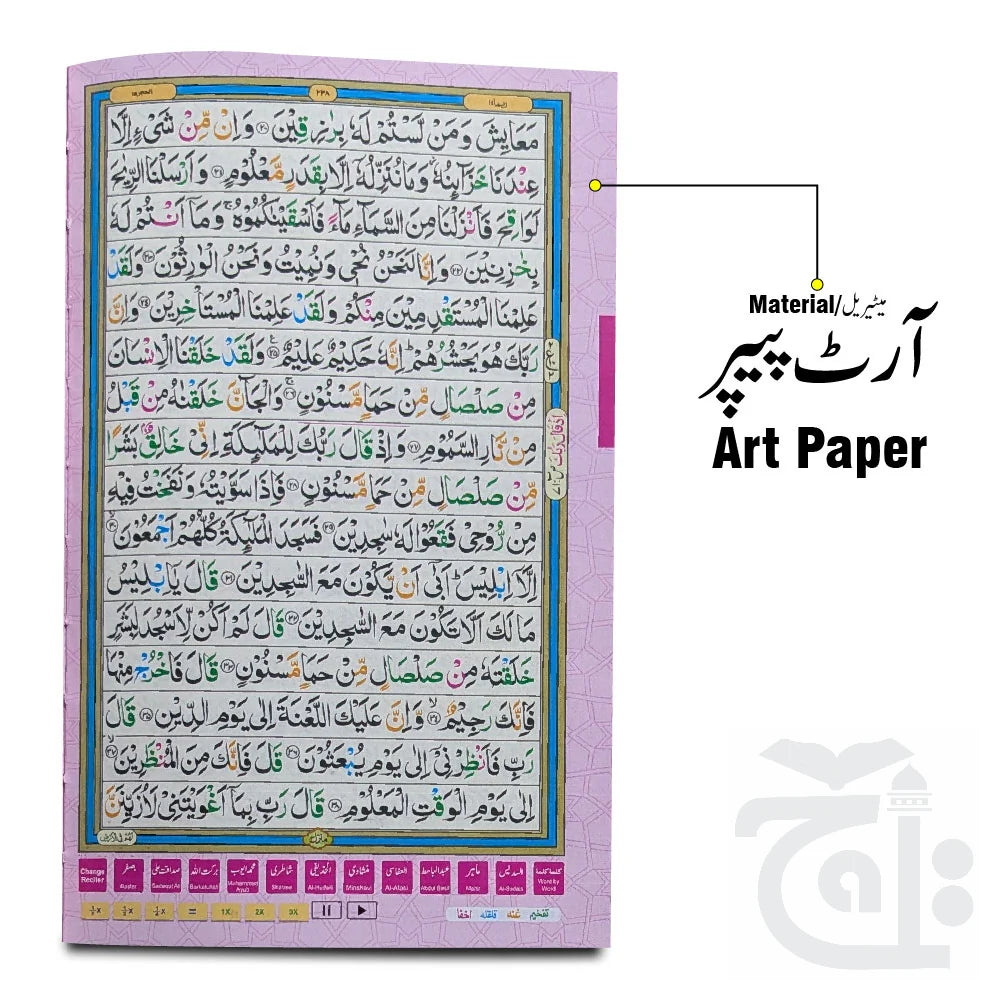 ربما ۱۴ ۲۳۸ الحجر ۱۵
مَعَايِشَ وَمَنْ لَّسْتُمْ لَهٗ بِرٰزِقِيْنَ ۲۰ وَاِنْ مِّنْ شَيْءٍ اِلَّا
عِنْدَنَا خَزَآىِٕنُهٗ وَمَا نُنَزِّلُهٗۤ اِلَّا بِقَدَرٍ مَّعْلُوْمٍ ۲۱ وَاَرْسَلْنَا الرِّيٰحَ
لَوَاقِحَ فَاَنْزَلْنَا مِنَ السَّمَآءِ مَآءً فَاَسْقَيْنٰكُمُوْهُ ۚ وَمَاۤ اَنْتُمْ لَهٗ
بِخٰزِنِيْنَ ۲۲ وَاِنَّا لَنَحْنُ نُحْيٖ وَنُمِيْتُ وَنَحْنُ الْوٰرِثُوْنَ ۲۳ وَلَقَدْ
عَلِمْنَا الْمُسْتَقْدِمِيْنَ مِنْكُمْ وَلَقَدْ عَلِمْنَا الْمُسْتَاْخِرِيْنَ ۲۴ وَاِنَّ
رَبَّكَ هُوَ يَحْشُرُهُمْ ؕ اِنَّهٗ حَكِيْمٌ عَلِيْمٌ ۲۵ وَلَقَدْ خَلَقْنَا الْاِنْسَانَ
مِنْ صَلْصَالٍ مِّنْ حَمَاٍ مَّسْنُوْنٍ ۲۶ وَالْجَآنَّ خَلَقْنٰهُ مِنْ قَبْلُ
مِنْ نَّارِ السَّمُوْمِ ۲۷ وَاِذْ قَالَ رَبُّكَ لِلْمَلٰٓىِٕكَةِ اِنِّيْ خَالِقٌۢ بَشَرًا
مِّنْ صَلْصَالٍ مِّنْ حَمَاٍ مَّسْنُوْنٍ ۲۸ فَاِذَا سَوَّيْتُهٗ وَنَفَخْتُ فِيْهِ
مِنْ رُّوْحِيْ فَقَعُوْا لَهٗ سٰجِدِيْنَ ۲۹ فَسَجَدَ الْمَلٰٓىِٕكَةُ كُلُّهُمْ اَجْمَعُوْنَ ۳۰
اِلَّاۤ اِبْلِيْسَ ؕ اَبٰۤى اَنْ يَّكُوْنَ مَعَ السّٰجِدِيْنَ ۳۱ قَالَ يٰۤاِبْلِيْسُ
مَا لَكَ اَلَّا تَكُوْنَ مَعَ السّٰجِدِيْنَ ۳۲ قَالَ لَمْ اَكُنْ لِّاَسْجُدَ لِبَشَرٍ
خَلَقْتَهٗ مِنْ صَلْصَالٍ مِّنْ حَمَاٍ مَّسْنُوْنٍ ۳۳ قَالَ فَاخْرُجْ مِنْهَا
فَاِنَّكَ رَجِيْمٌ ۳۴ وَّاِنَّ عَلَيْكَ اللَّعْنَةَ اِلٰى يَوْمِ الدِّيْنِ ۳۵ قَالَ
رَبِّ فَاَنْظِرْنِيْۤ اِلٰى يَوْمِ يُبْعَثُوْنَ ۳۶ قَالَ فَاِنَّكَ مِنَ الْمُنْظَرِيْنَ ۳۷
اِلٰى يَوْمِ الْوَقْتِ الْمَعْلُوْمِ ۳۸ قَالَ رَبِّ بِمَاۤ اَغْوَيْتَنِيْ لَاُزَيِّنَنَّ
Change Reciter
اصغر Asgar
صداقت علی Sadaqat Ali
برکت اللہ Barkatullah
محمد ایوب Mohammed Ayub
شاطری Shatree
الحذیفی Al-Hudaifi
منشاوی Minshawi
العفاسی Al-Afasi
عبدالباسط Abdul Basit
ماہر Maher
السدیس Al-Sudais
کلمۃ کلمۃ Word by Word
1X 2X 3X
تفخیم غنہ قلقلہ اخفا
Material/میٹیریل
آرٹ پیپر
Art Paper